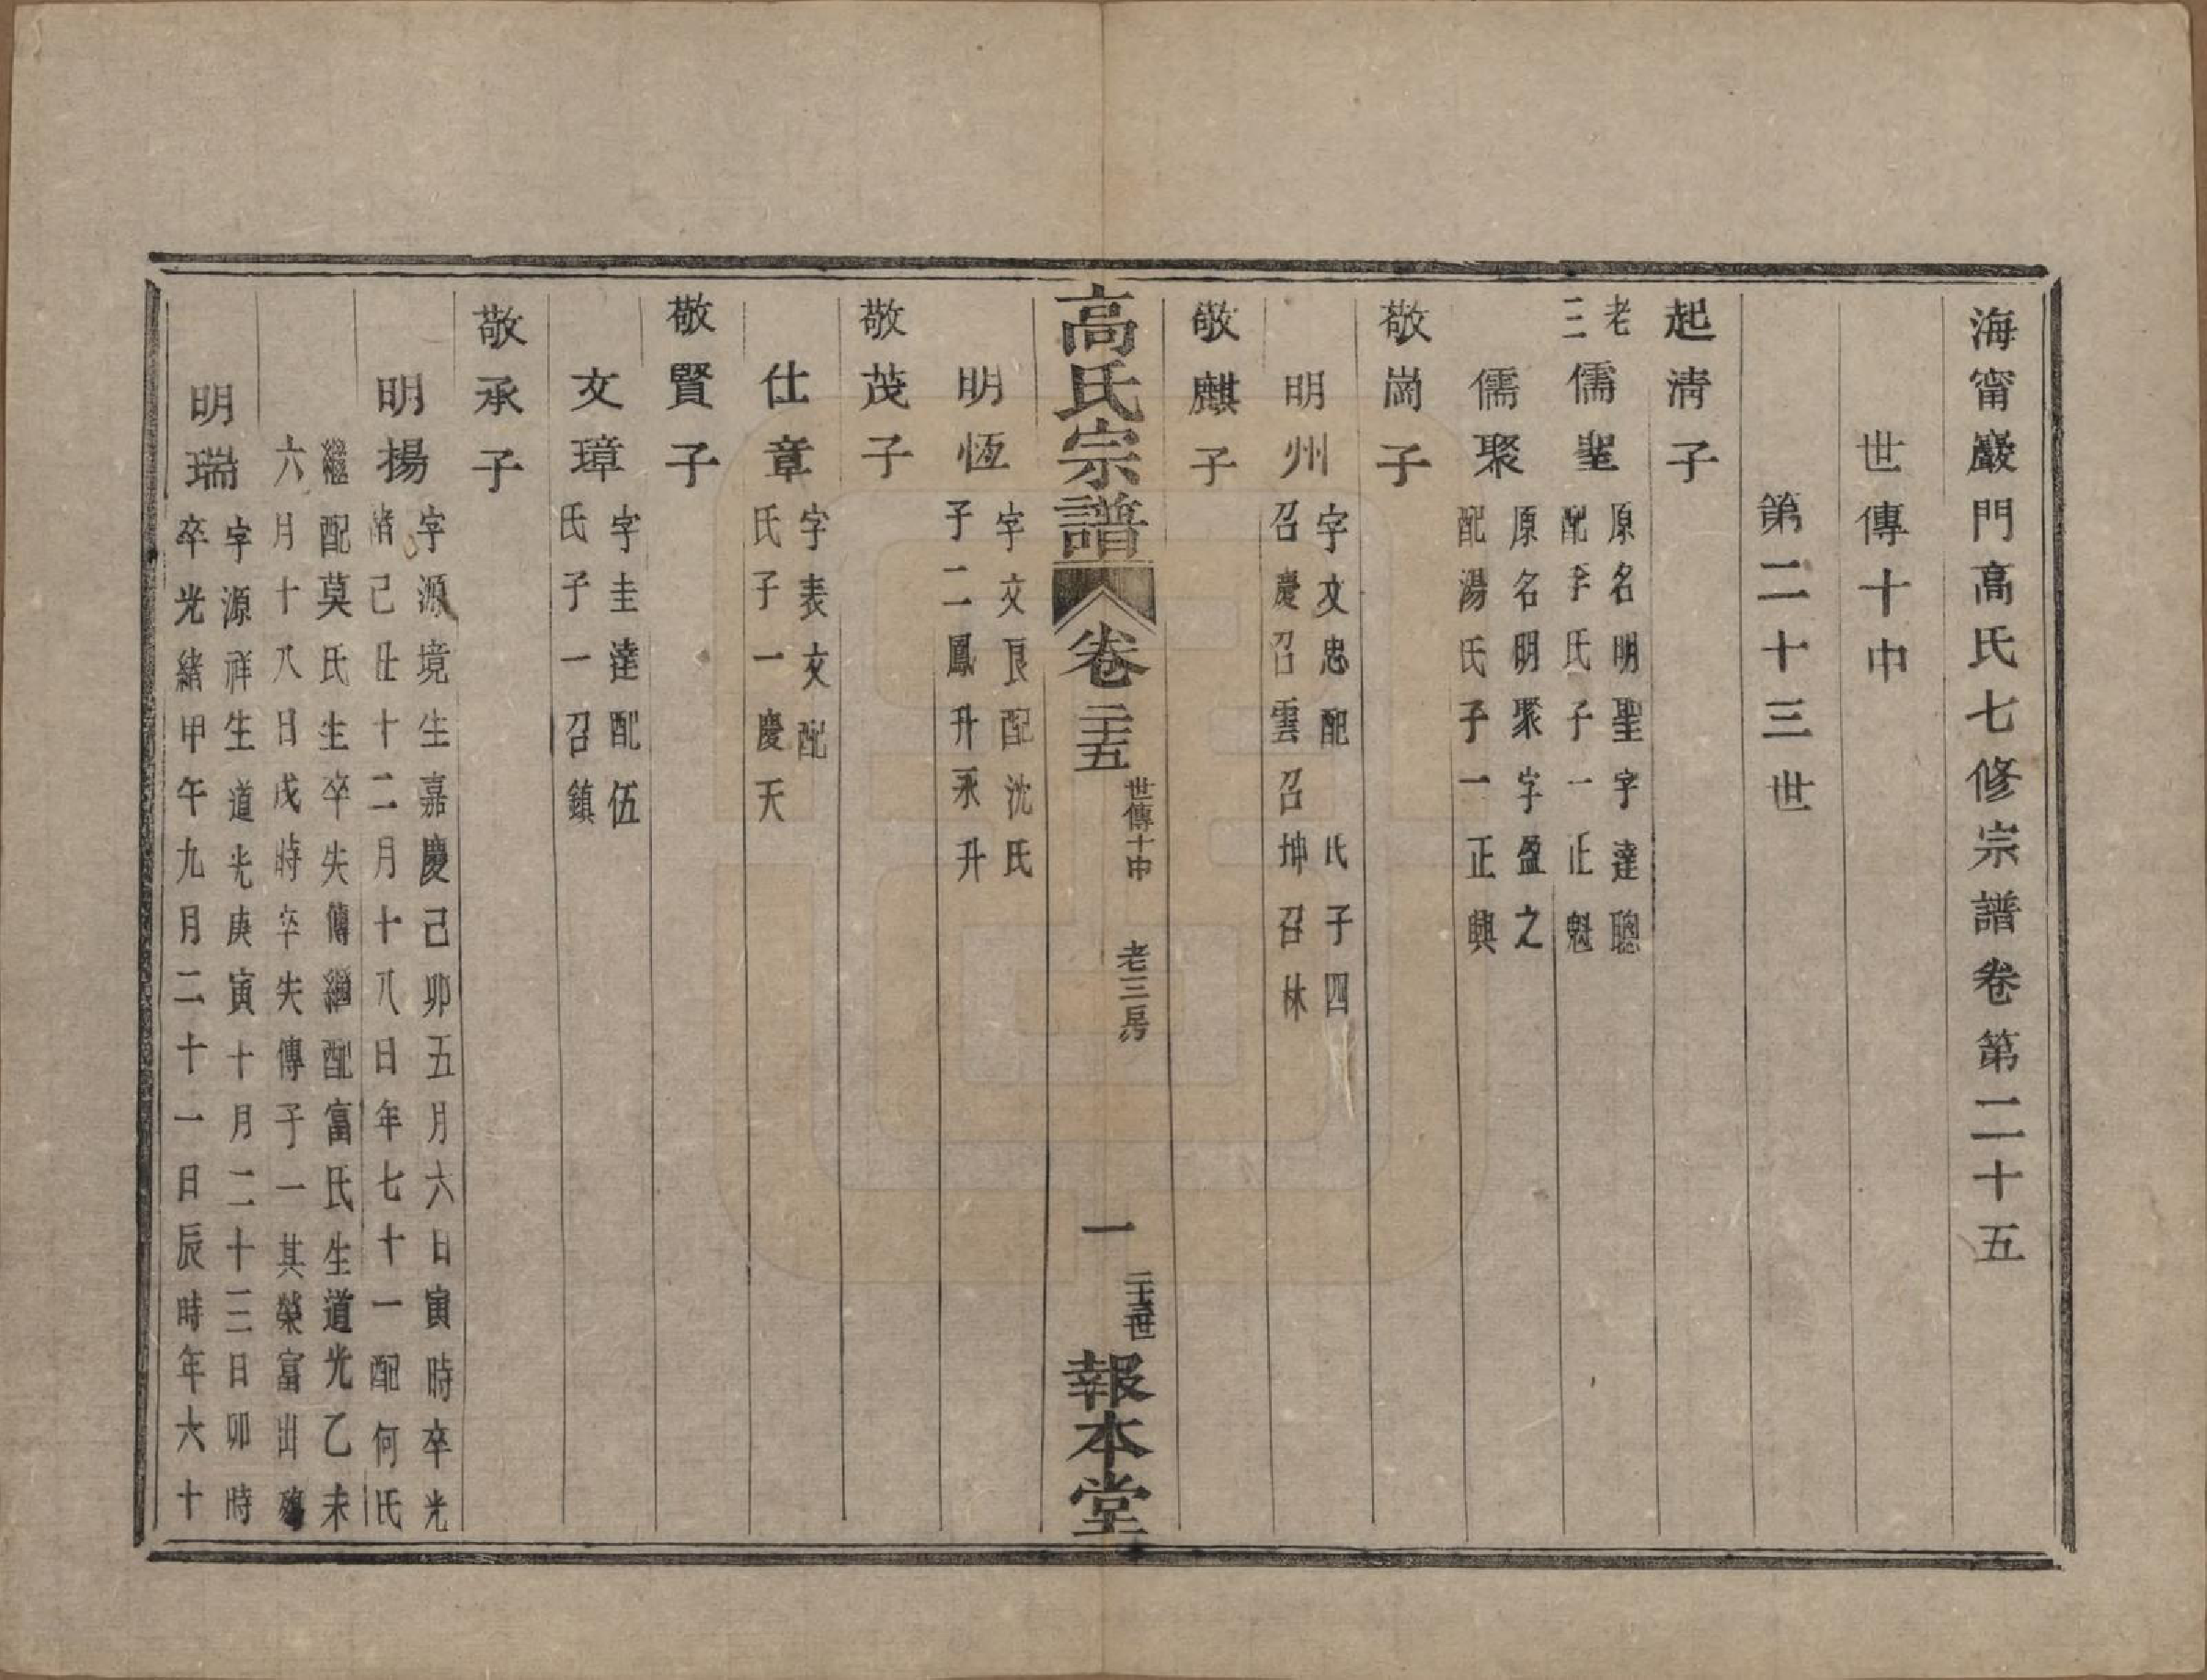 海甯巖門高氏七修宗譜卷第二十五
世傳十中
第二十三世
起清子
老三
儒聖
原名明聖字達聰
配李氏子一正魁
儒聚
原名明聚字盈之
配湯氏子一正興
敬崗子
明州
字文忠配 氏子四
召慶召雲召坤召林
敬麒子
高氏宗譜
卷二十五
世傳十中
老三房
一
二十三世
報本堂
明恆
字文良配沈氏
子二鳳升永升
敬茂子
仕章
字表文配
氏子一慶天
敬賢子
文璋
字圭達配伍
氏子一召鎮
敬承子
明揚
字源境生嘉慶己卯五月六日寅時卒光
緒己丑十二月十八日年七十一配何氏
繼配莫氏生卒失傳繼配富氏生道光乙未
六月十八日戌時卒失傳子一其榮富出殤
明瑞
字源祥生道光庚寅十月二十三日卯時
卒光緒甲午九月二十一日辰時年六十